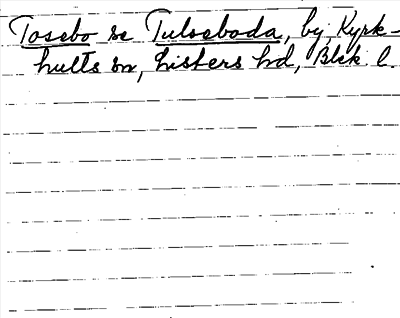 Tosebo se Tulseboda, by, Kyrk-
hults sn, Listers hd, Blek l.